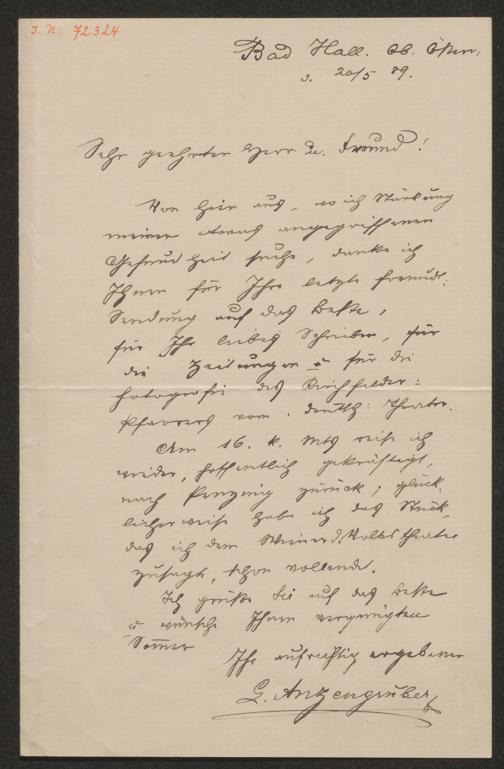 J. N. 72324
Bad Hall. Ob. Österr:
d. 20/5 89.
Sehr geehrter Herr u. Freund!
Von hier aus, wo ich Stärkung
meiner etwas angegriffenen
Gesundheit suche, danke ich
Ihnen für Ihre letzte freundl:
Sendung auf das Beste,
für Ihr liebes Schreiben, für
die Zeitungen u für die
Fotografie des Kirchfelder=
Pfarrers vom deutsch: Theater.
Am 16. k. Mts reise ich
wieder, hoffentlich gekräftigt,
nach Penzing zurück; glück=
licherweise habe ich das Stück,
das ich dem Wiener d. Volkstheater
zusagte, schon vollendet.
Ich grüße Sie auf das Beste
u wünsche Ihnen vergnügten
Sommer
Ihr aufrichtig ergebener
L. Anzengruber